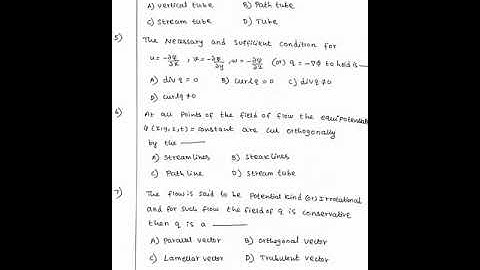 A) vertical tube B) Path tube
C) Stream tube D) Tube
5) The Necessary and Sufficient Condition for
u = -∂φ/∂x , v = -∂φ/∂y , w = -∂φ/∂z (or) q = -∇φ to hold is —
A) div q = 0 B) Curl q = 0 C) div q ≠ 0
D) curl q ≠ 0
6) At all Points of the field of flow the equipotential
φ(x,y,z,t) = constant are cut orthogonally
by the ——
A) Streamlines B) Steaklines
C) Path line D) Stream tube
7) The flow is said to be Potential kind (or) Irrotational
and for such flow the field of q is conservative
then q is a ——
A) Parallel vector B) Orthogonal vector
C) Lamellar vector D) Trubulent vector